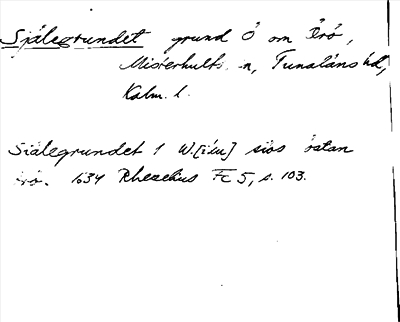 Själegrundet grund Ö om Ärö,
Misterhults -n, Tunaläns hd,
Kalm. l.
Siälegrundet 1 W.[iku] siös östan
ärö. 1634 Rhezelius Fc 5, s. 103.